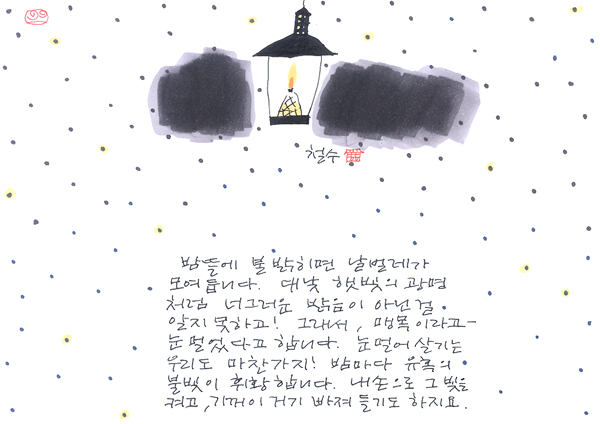 철수
밤뜰에 불 밝히면 날벌레가
모여 듭니다. 대낮 햇빛의 광명
처럼 너그러운 밝음이 아닌걸
알지 못하고! 그래서, 맹목이라고-
눈 멀었다고 합니다. 눈 멀어 살기는
우리도 마찬가지! 밤마다 유혹의
불빛이 휘황합니다. 내손으로 그 빛을
켜고, 기꺼이 거기 빠져 들기도 하지요.